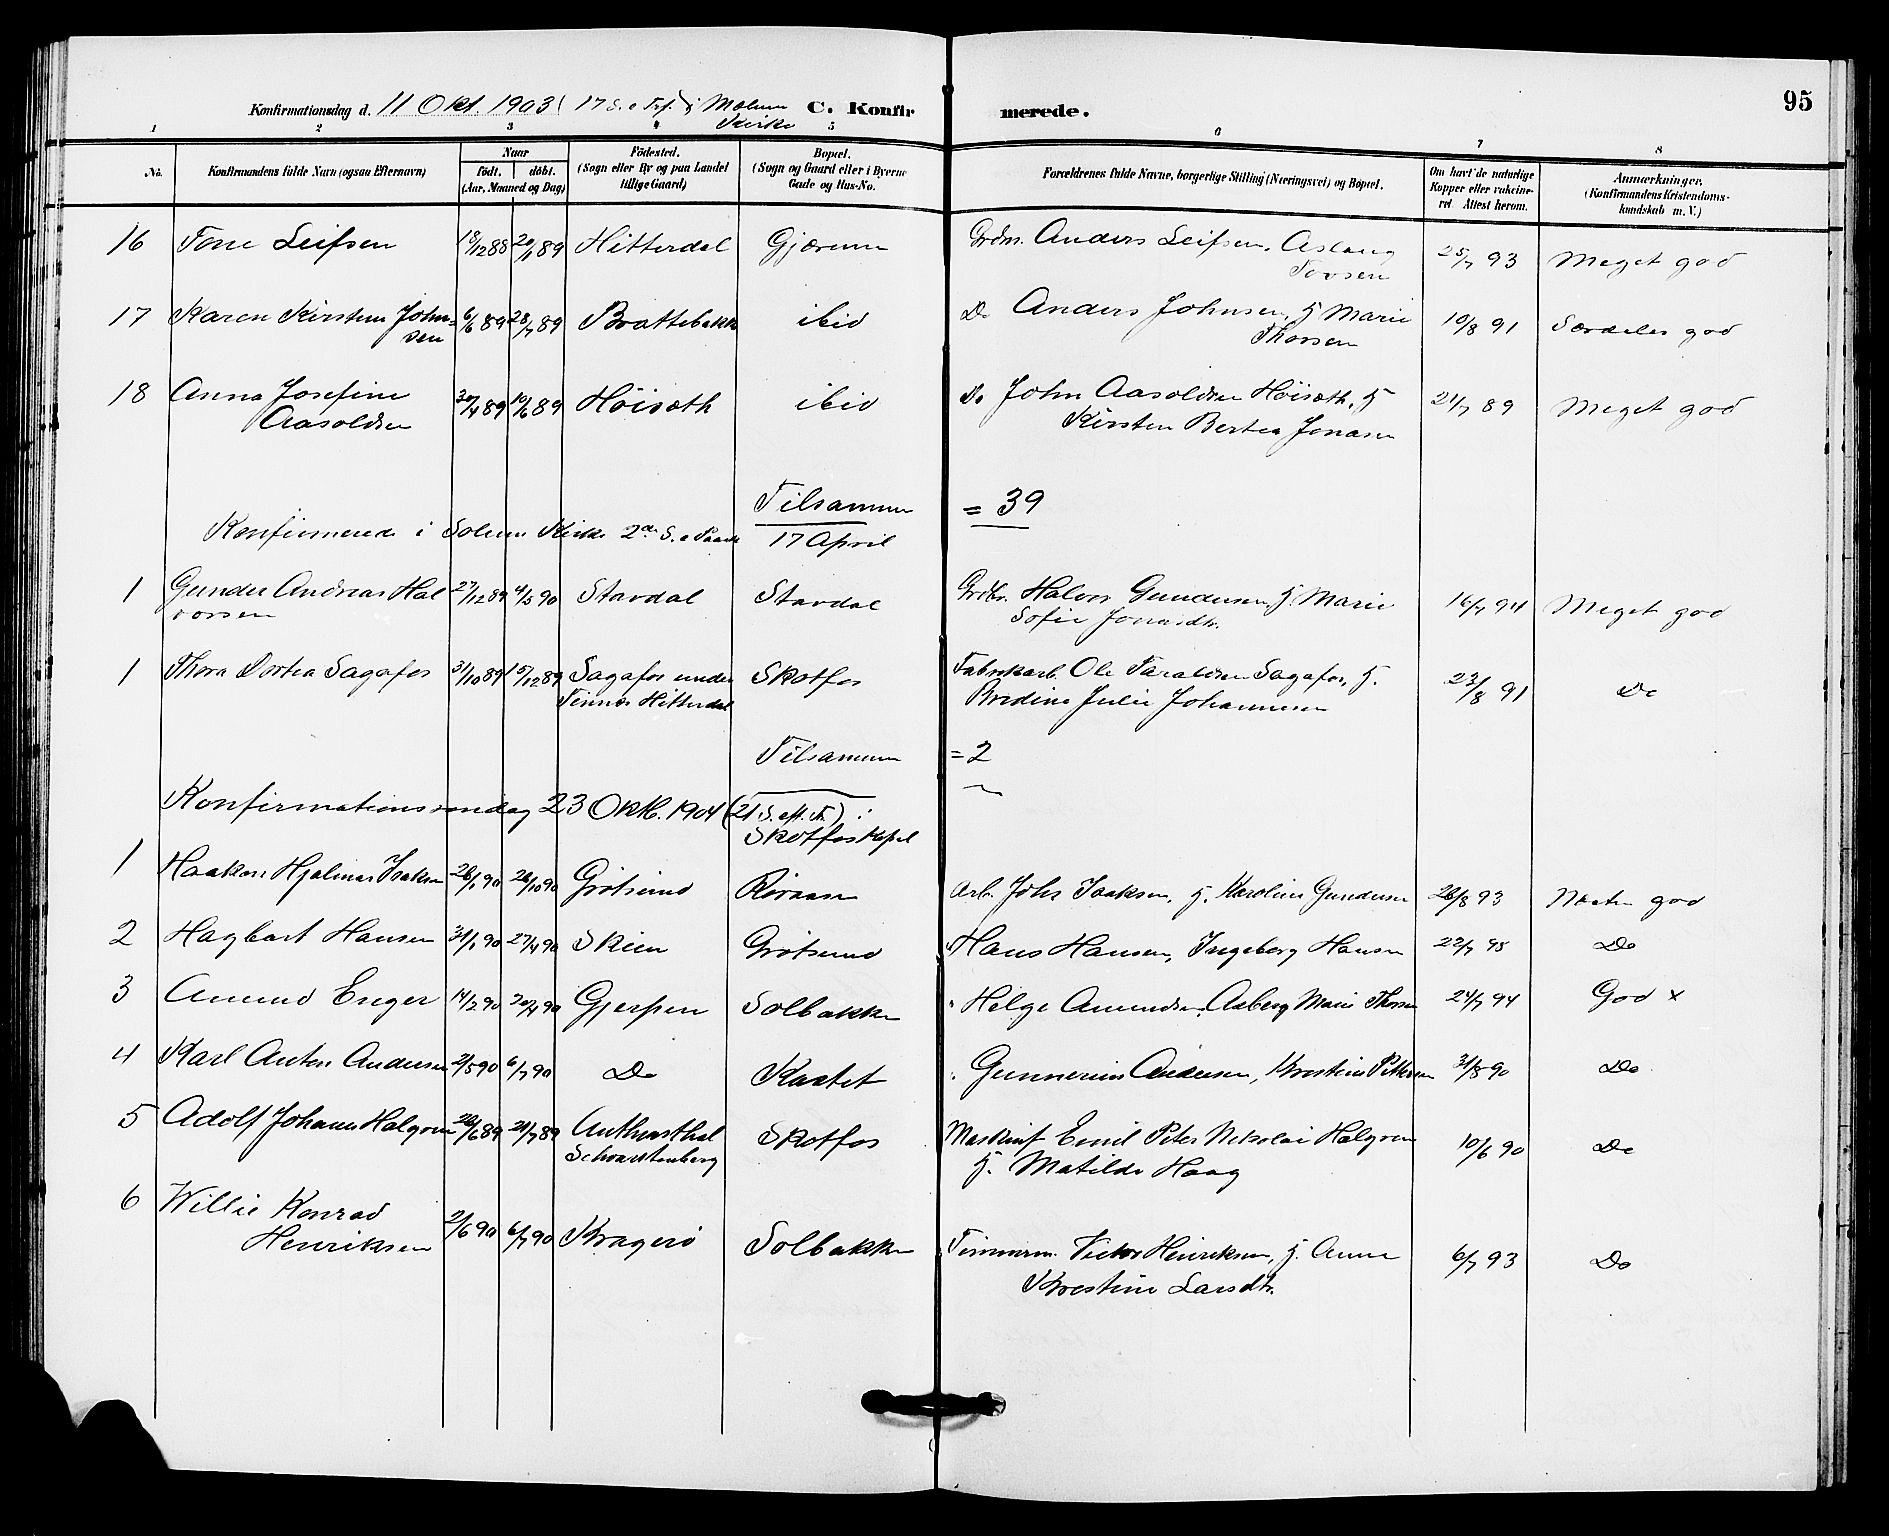 95
Konfirmationsdag d. 11 Okt. 1903 (17 S. e Tref.) i Melum Kirke C. Konfirmerede.
1 2 3 4 5 6 7 8
No. Konfirmandens fulde Navn (ogsaa Efternavn) Naar født. døbt. (Aar, Maaned og Dag) Fødested. (Sogn eller By og paa Landet tillige Gaard) Bopæl. (Sogn og Gaard eller i Byerne Gade og Hus-No. Forældrenes fulde Navne, borgerlige Stilling (Næringsvei) og Bopæl. Om havt de naturlige Kopper eller vakcineret. Attest herom. Anmærkninger. (Konfirmandens Kristendomskundskab m. V.)
16 Tone Leifsen 18/12 88 20/1 89 Hitterdal Gjærum Grdm. Anders Leifsen, Aslaug Tovsen 25/7 93 Meget god
17 Karen Kirstine Johnsen 6/6 89 28/7 89 Brattebakk ibid Do Anders Johnsen, H Marie Thorsen 19/8 91 Særdeles god
18 Anna Josefine Aasoldsen 30/4 89 10/6 89 Høisæth ibid Do John Aasoldsen Høisæth, H Kirsten Bertea Jonasen 21/7 89 Meget god
Tilsammen = 39
Konfirmerede i Solum Kirke 2den S. e Paaske 17 April
1 Gunder Andreas Halvorsen 27/12 89 4/5 90 Stavdal Stavdal Grdbr. Halvor Gundersen, H Marie Sofie Jonasdtr. 16/7 94 Meget god
1 Thora Dortea Sagafos 31/10 89 15/12 89 Sagafos under Tinnes Hitterdal Skotfos Fabrikarb. Ole Taraldsen Sagafos, H. Bredine Julie Johannesen 23/8 91 Do
Tilsammen = 2
Konfirmationssøndag 23 Oktb. 1904 (21 S. eft. Tr.) i Skotfos Kapel
1 Haakon Hjalmar Isaksen 26/1 90 26/10 90 Grøtsund Røraasen Arb. Johs Isaksen, H. Karoline Gundersen 26/8 93 Næsten god
2 Hagbart Hansen 31/1 90 27/4 90 Skien Grøtsund " Hans Hansen, Ingeborg Hansen 22/7 95 Do
3 Amund Enger 14/2 90 20/4 90 Gjerpen Solbakken " Helge Amundsen, Asberg Marie Thorsen 24/7 94 God x
4 Karl Anton Andersen 2/5 90 6/7 90 Do Kaatet " Gunnerius Andersen, Krestine Pettersen 31/8 90 Do
5 Adolf Johannes Halgren 20/6 89 21/7 89 Anthensthal Schwartzenberg Skotfos Maskinf Emil Peter Nikolai Halgren H. Matilde Haag 10/6 90 Do
6 Willie Konrad Henriksen 2/6 90 6/7 90 Kragerø Solbakken Tømmerm. Victor Henriksen, H. Anne Krestine Larsdtr. 6/7 93 Do